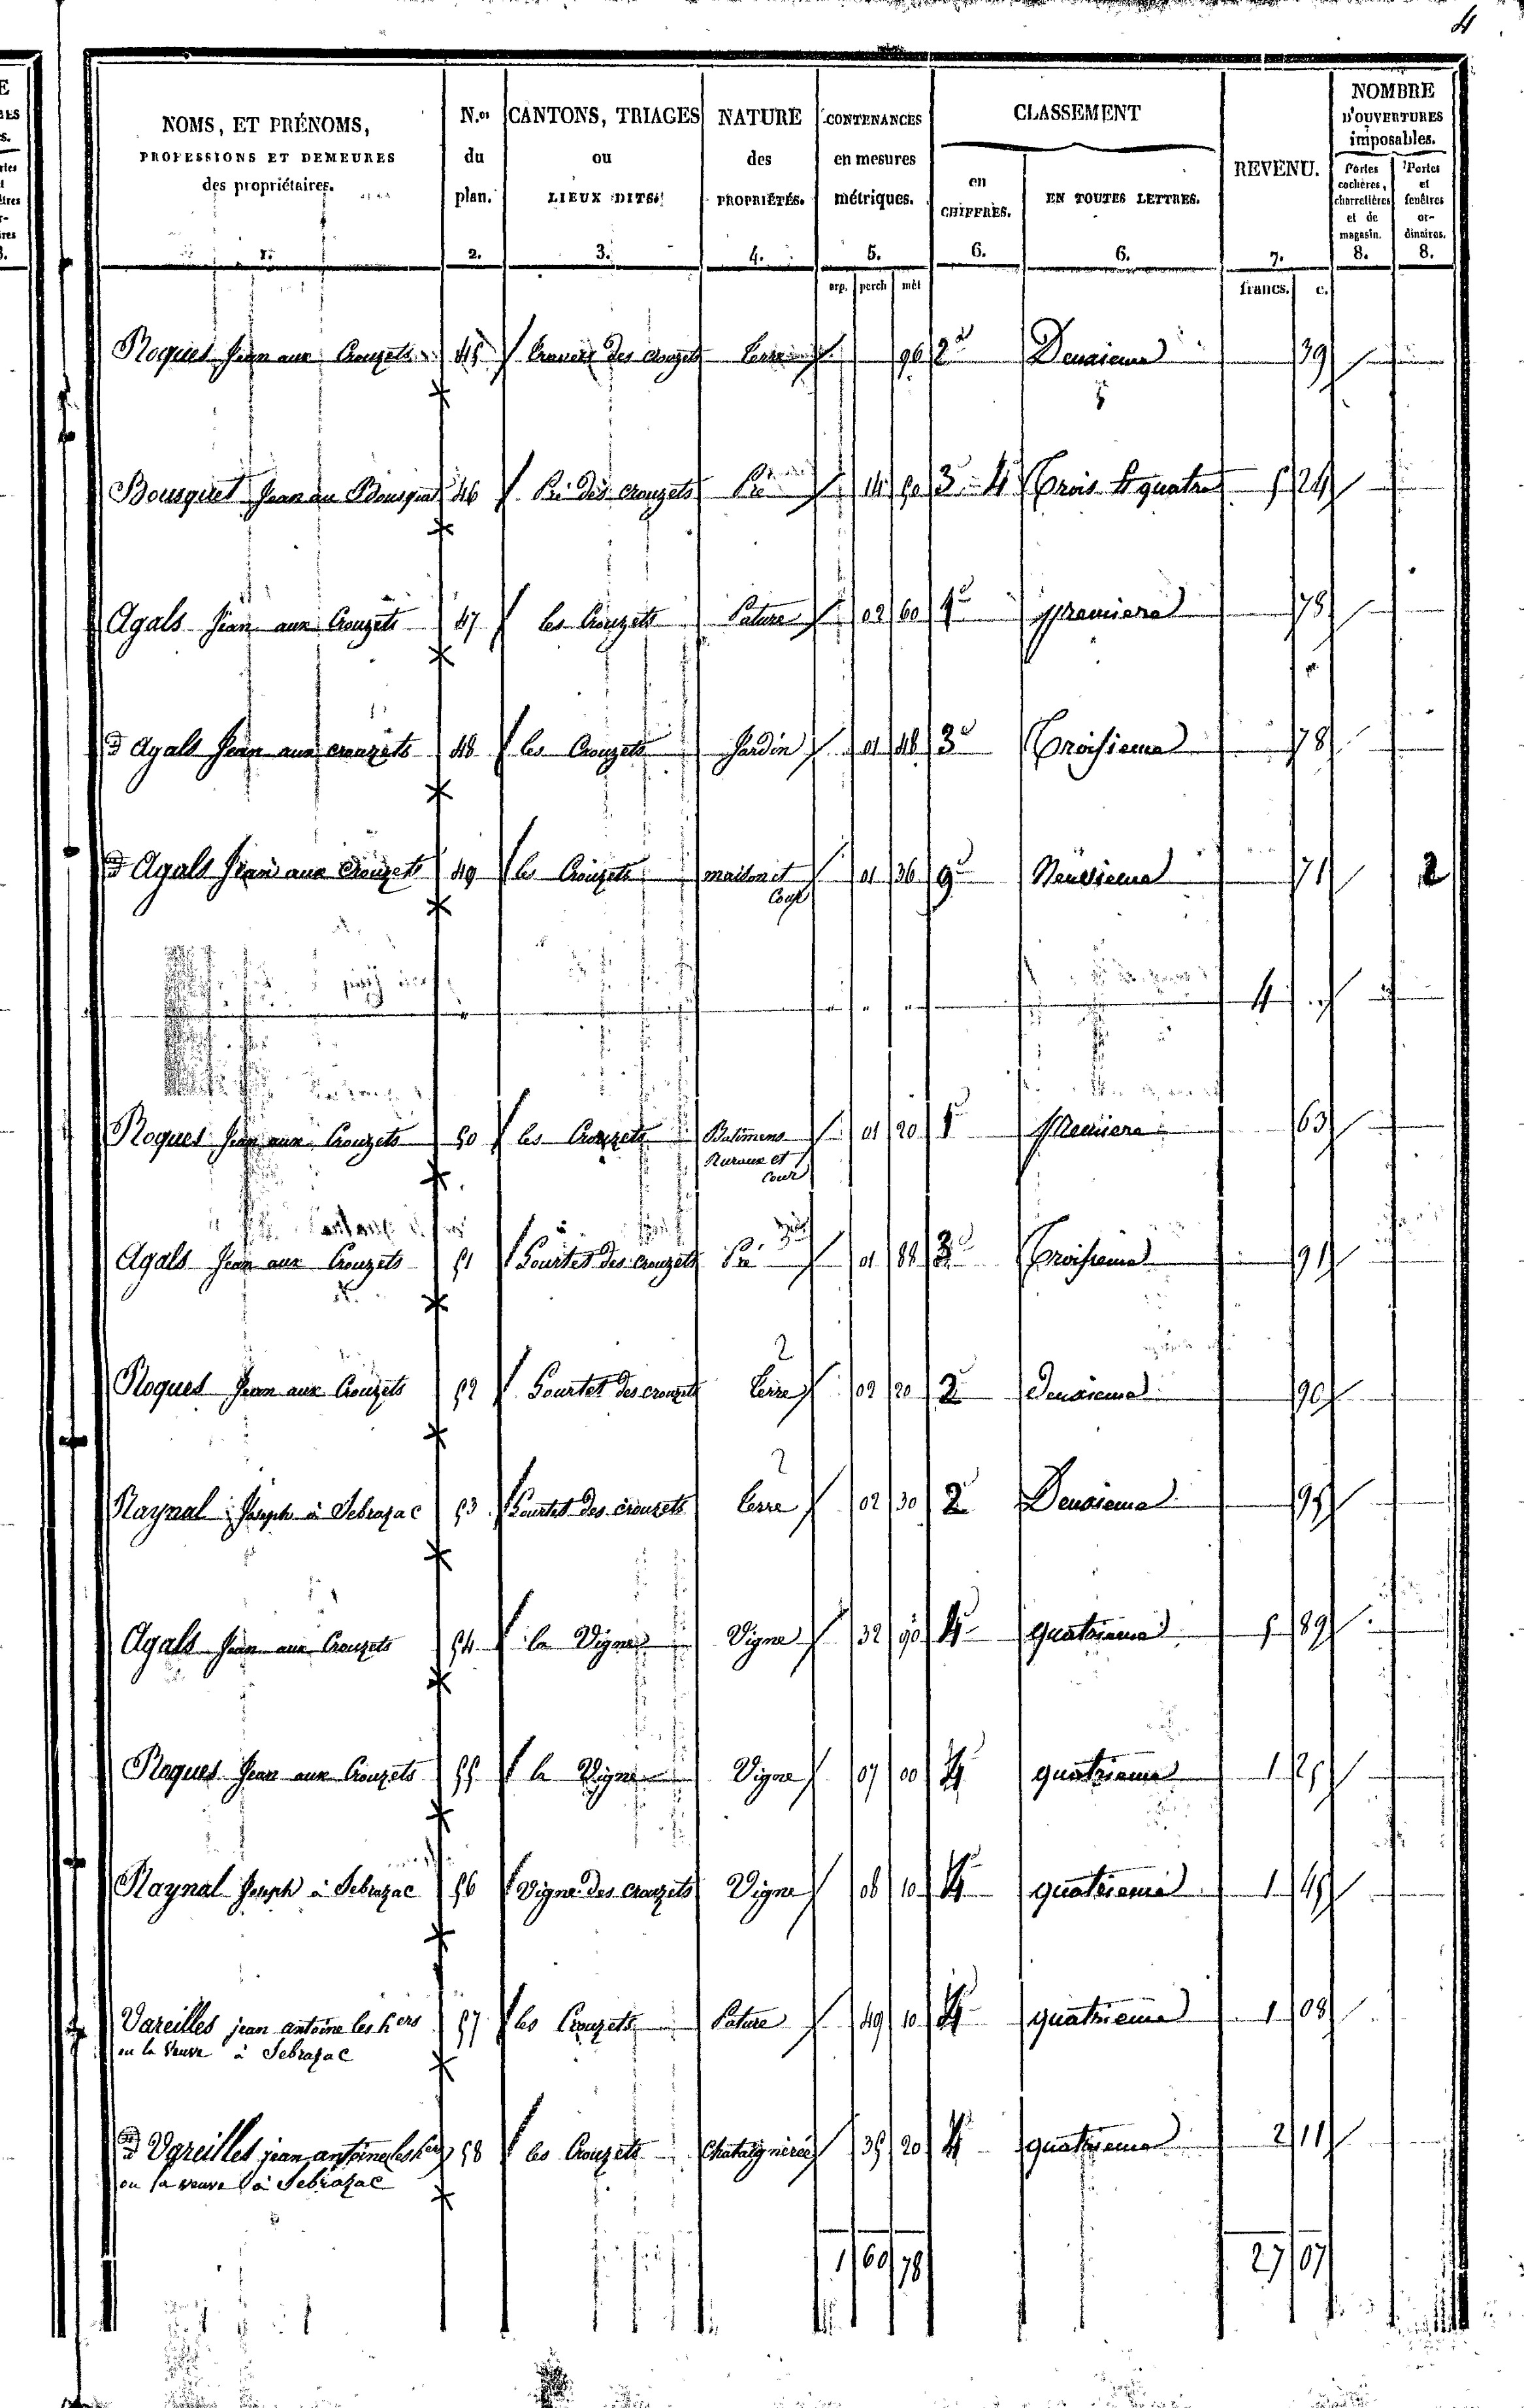 4
NOMS, ET PRÉNOMS, PROFESSIONS ET DEMEURES des propriétaires. 1.
N.os du plan. 2.
CANTONS, TRIAGES ou LIEUX DITS. 3.
NATURE des PROPRIÉTÉS. 4.
CONTENANCES en mesures métriques. 5.
CLASSEMENT
en CHIFFRES. 6.
EN TOUTES LETTRES. 6.
REVENU. 7.
NOMBRE D'OUVERTURES imposables.
Portes cochères, charretières et de magasin. 8.
Portes et fenêtres ordinaires. 8.
arp. perch. mèt francs. c.
Roques Jean aux Crouzets 45 des Crouzets Terre 96 2e Deuxieme 39
Bousquet Jean au Bousquet 46 Pré des Crouzets Pré 14 50 3 4 Trois et quatre 5 24
Agals Jean aux Crouzets 47 les Crouzets Pature 02 60 1e premiere 78
d Agals Jean aux crouzets 48 les Crouzets Jardin 01 48 3e Troisieme 78
d Agals Jean aux Crouzets 49 les Crouzets maison et 01 36 9e Neuvieme 71 2
Cour
4
Roques Jean aux Crouzets 50 les Crouzets Batimens 01 20 1e premiere 63
Ruraux et
Cour
Agals Jean aux Crouzets 51 Sourtet des crouzets Pré 01 88 3e Troisieme 91
2
Roques Jean aux Crouzets 52 Sourtet des crouzets Terre 02 20 2 Deuxieme 90
2
Raynal Joseph à Sebrazac 53 Sourtet des crouzets Terre 02 30 2 Deuxieme 95
Agals Jean aux Crouzets 54 la Vigne Vigne 32 90 4e quatrieme 5 89
Roques Jean aux Crouzets 55 la Vigne Vigne 07 00 4e quatrieme 1 25
Raynal Joseph à Sebrazac 56 Vigne des Crouzets Vigne 08 10 4e quatrieme 1 45
Vareilles jean antoine les hers 57 les Crouzets Pature 49 10 4e quatrieme 1 08
ou la Veuve à Sebrazac
d Vareilles jean antoine les hers 58 les Crouzets Chataigneraie 35 20 4e quatrieme 2 11
ou la veuve à Sebrazac
1 60 78 27 07